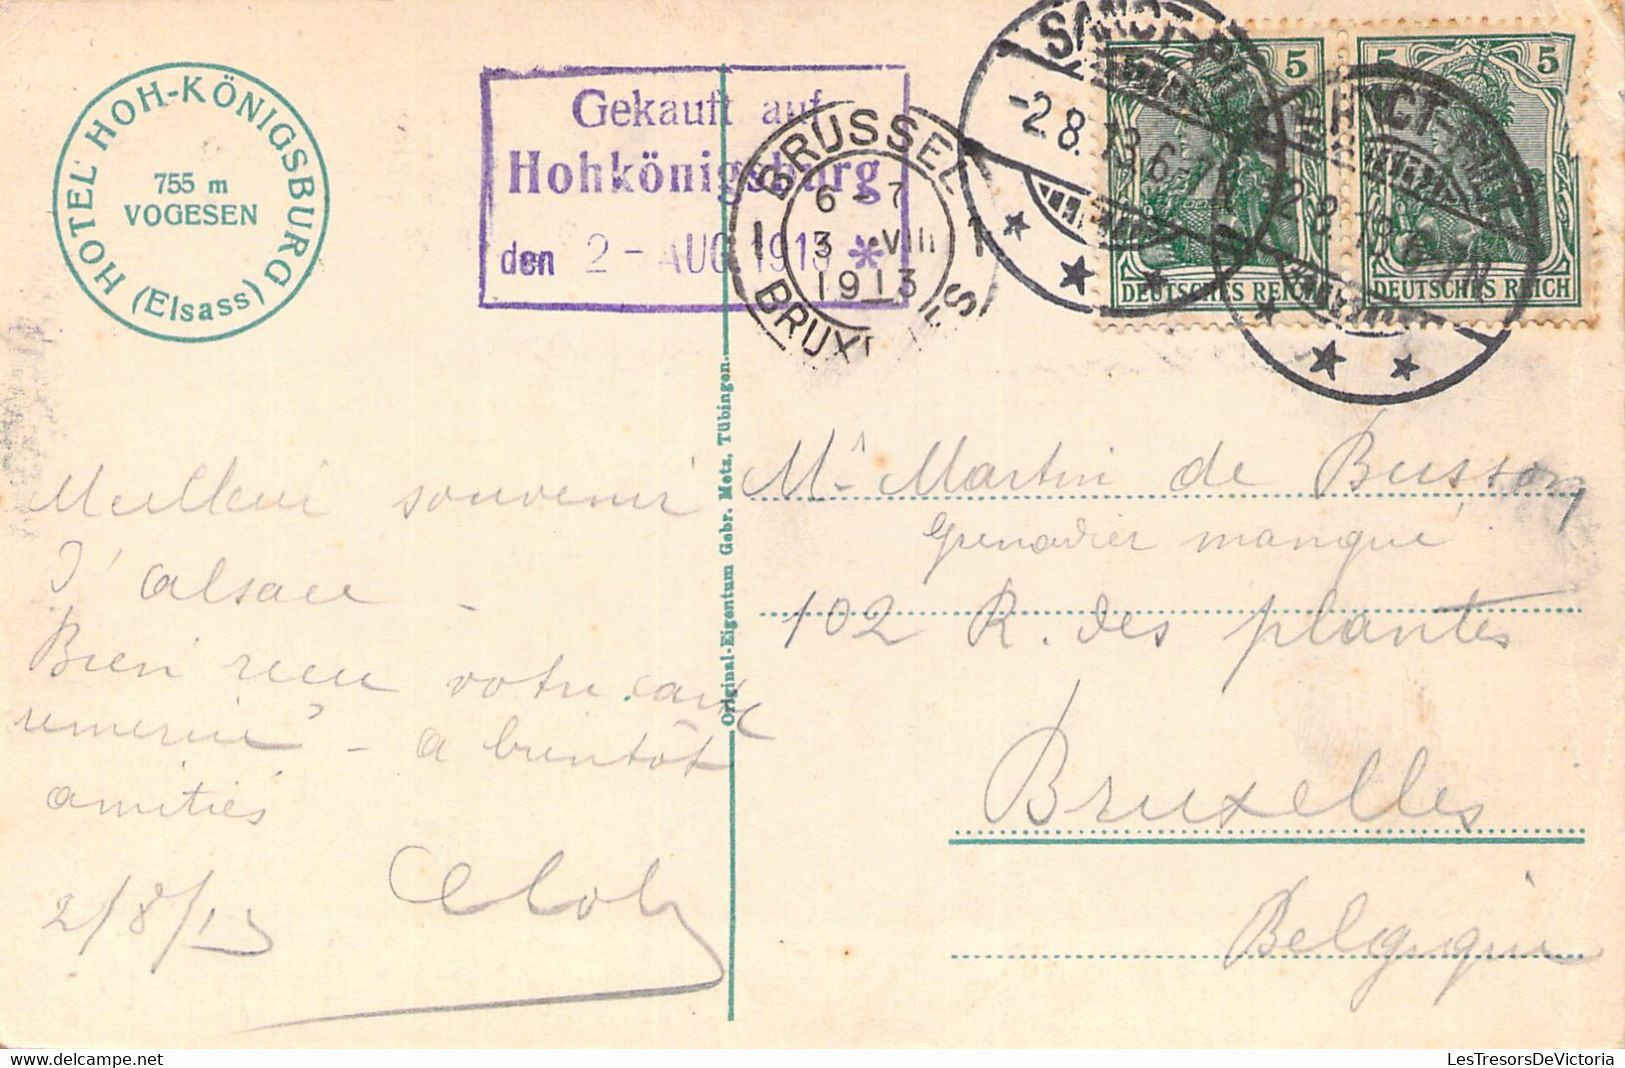 HOTEL HOH-KÖNIGSBURG
755 m
VOGESEN
(Elsass)
Gekauft auf
Hohkönigsburg
den 2 - AUG 1913 *
BRUSSEL
6 - 7
1 3 VIII 1
1913
SANCT-
-2.8.13 6-7N
5
DEUTSCHES REICH
5
DEUTSCHES REICH
Original-Eigentum Gebr. Metz, Tübingen.
Meilleur souvenir
d'alsace -
Bien reçu votre carte
- a bientôt
amitiés
2/8/13
Mr Martin de Busson
grenadier manqué
102 R. des plantes
Bruxelles
Belgique
LesTresorsDeVictoria